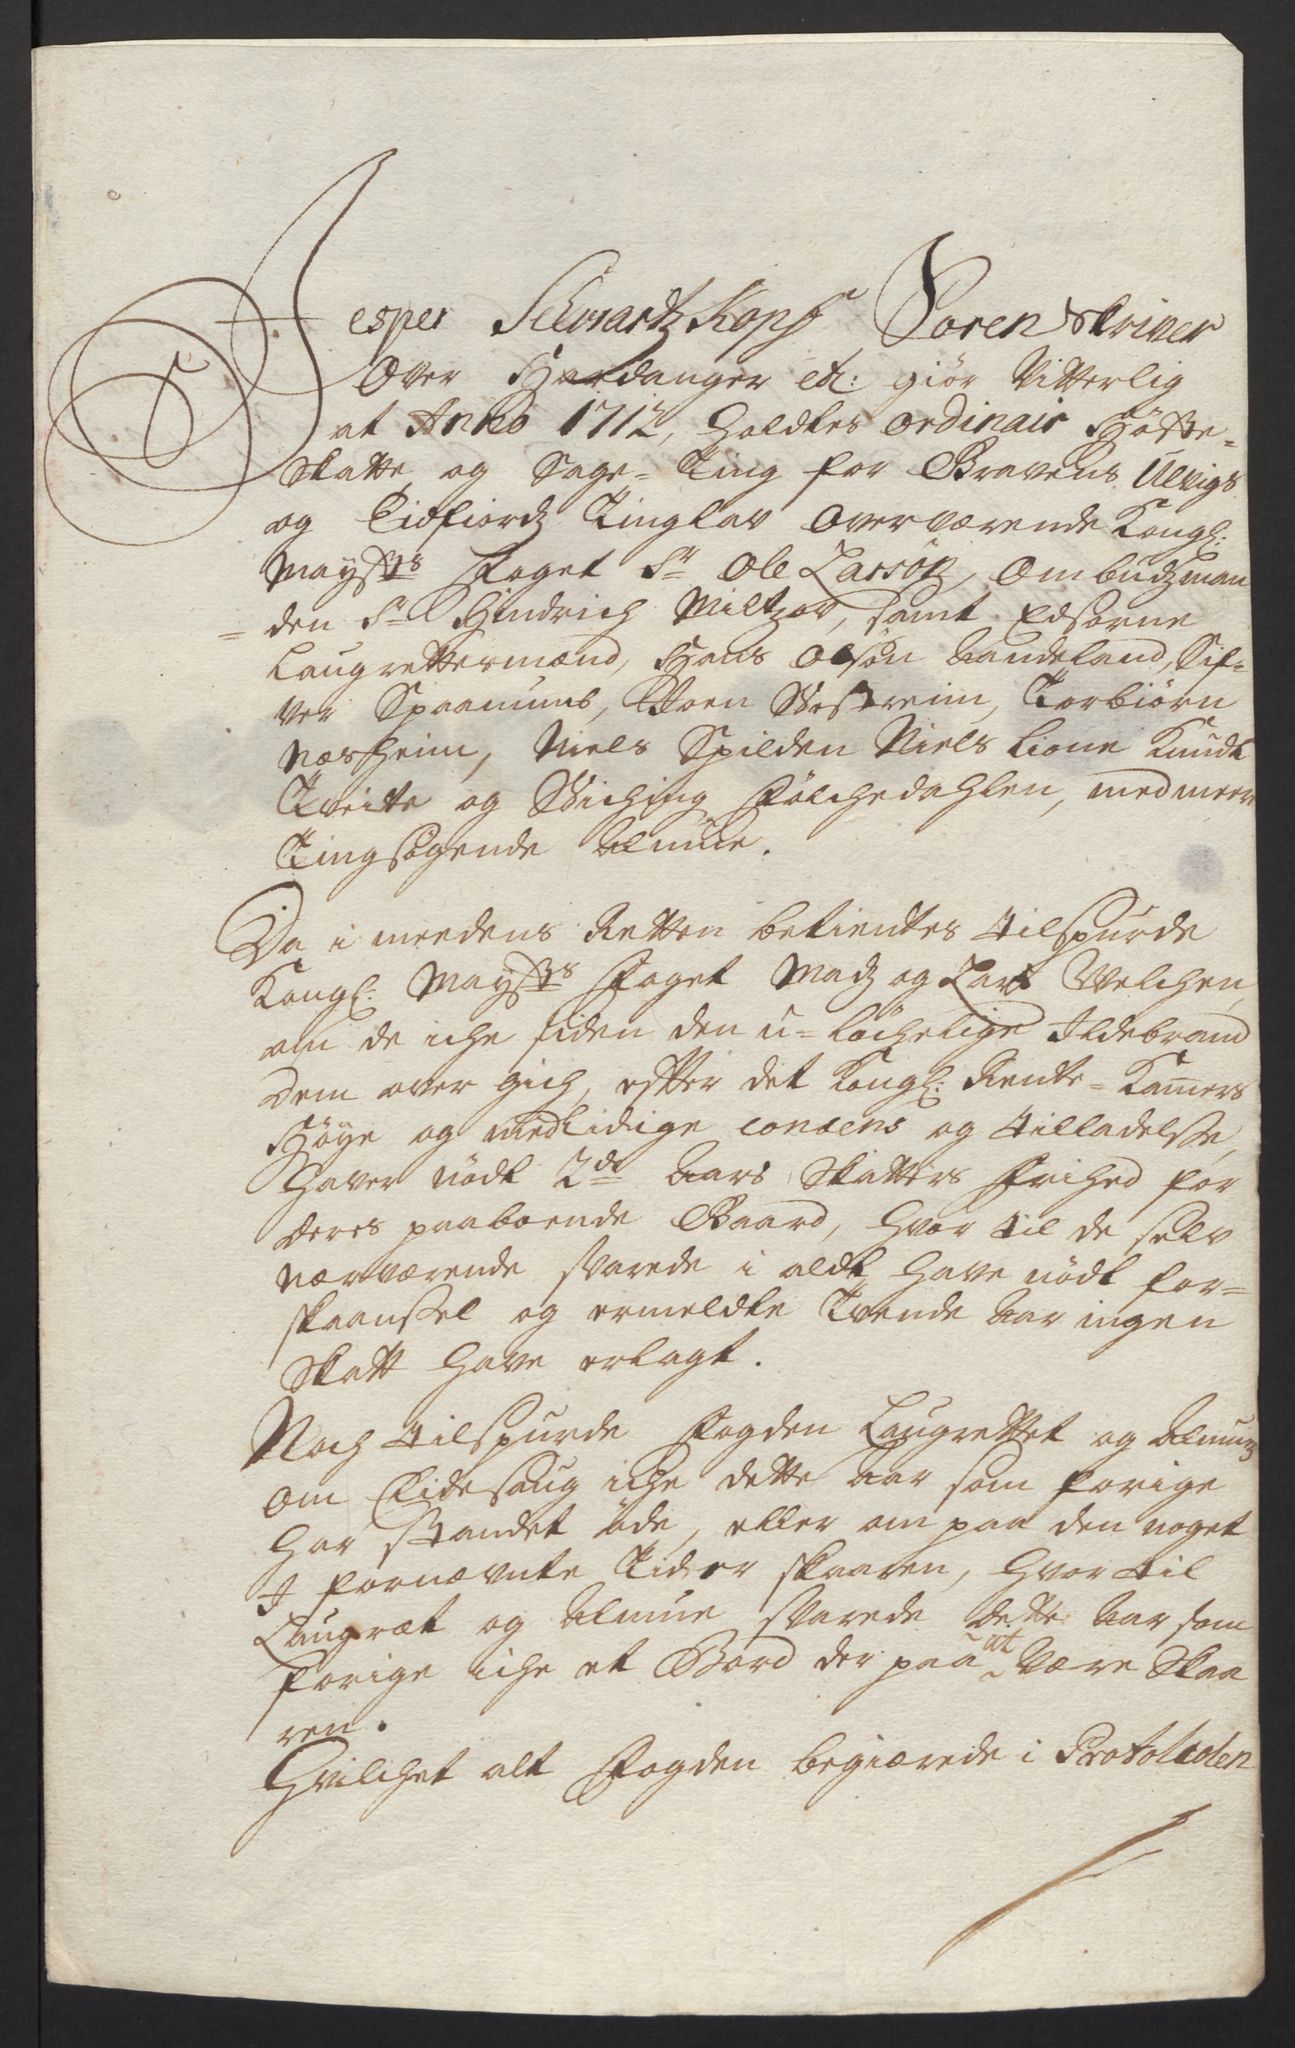 Jesper Schvartzkopf Soren Skriver
Over Hardanger etc: giör Vitterlig
at Anno 1712, holdtes ordinair Höste-
Skatte og Sage-Ting for Gravens Ulvigs
og Eidfiordz Tinglav Overværende Kongl:
Mayßts Foget Sr Ole Larsön, Ombudzman
-den Sr Hindrich Miltzov, samt Edsorne
Laugrettesmænd, Hans Olsön Haudeland, Sif-
ver Spaanumb, Joen Westreim, Torbiörn
Næsheim, Niels Spilden Niels Lione Knudt
Tveite og Wiching Fölchedahlen, med meere
Tingsögende Almue.
Da i meedens Retten betientes tilspurde
Kongl: Mayßts Foget Madz og Lars Velchen,
om de iche siden den u-löchelige Ildebrand
dem over gich, efter det Kongl: Rente-Kamers
Höye og medlidige consens og tilladelße,
haver nödt 2de Aars Skatters Frihed for
deres paaboende Gaard, hvor til de selv
nærværende svarede i aldt have nödt for-
skaanßel og ermeldte tvende Aar ingen
Skatt have erlagt.
Noch tilspurde Fogden Laugrettet og Almuen
om Eidesaug iche dette Aar som forige
har standet öde, eller om paa den noget
I fornævnte Tid er skaaren, hvor til
Laugræt og Almue svarede dette Aar som
forige iche et Bord der paa at være Skaa
ren.
Hvilchet alt Fogden begiærede i Protocolen